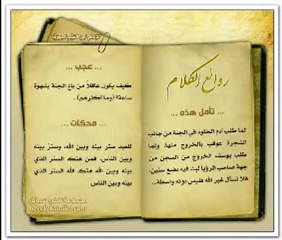 روائع الكلام
... تأمل هذه ...
لما طلب آدم الخلود في الجنة من جانب
الشجرة عوقب بالخروج منها، ولما
طلب يوسف الخروج من السجن من
جهة صاحب الرؤيا لبث فيه بضع سنين.
فلا تسأل غير الله فليس دونه واسطة...
... عجب ...
كيف يكون عاقلاً من باع الجنة بشهوة
ساعة؟ (وما أكثرهم).
... محكات ...
للعبد ستر بينه وبين الله، وستر بينه
وبين الناس، فمن هتك الستر الذي
بينه وبين الله هتك الله الستر الذي
بينه وبين الناس.